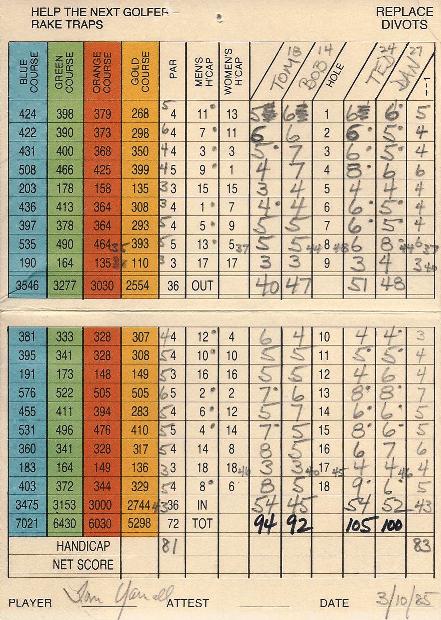 HELP THE NEXT GOLFER REPLACE
RAKE TRAPS DIVOTS
BLUE COURSE GREEN COURSE ORANGE COURSE GOLD COURSE PAR MEN'S H'CAP WOMEN'S H'CAP TOM 18 BOB 14 HOLE TED 24 DAN 27
424 398 379 268 5 4 11 13 5 6 1 6 6 5
422 390 373 298 6 4 7 11 6 6 2 6 5 4
431 400 368 350 4 4 3 3 5 7 3 6 5 4
508 466 425 399 4 5 9 1 4 7 4 8 6 6
203 178 158 135 3 3 15 15 3 4 5 4 4 4
436 413 364 308 3 4 1 7 4 4 6 6 5 4
397 378 364 293 5 4 5 9 5 5 7 6 5 4
535 490 464 35 393 5 5 13 5 37 5 5 44 8 48 6 8 44 6 37
190 164 135 110 3 3 17 17 3 3 9 3 4 3 40
3546 3277 3030 2554 36 OUT 40 47 51 48
381 333 328 307 4 4 12 4 6 4 10 4 4 3
395 341 328 308 5 4 10 10 5 5 11 5 5 4
191 173 148 149 5 3 16 16 5 5 12 4 6 4
576 522 505 505 6 5 2 2 7 6 13 8 8 7
455 411 394 283 5 4 6 12 5 7 14 6 6 5
531 496 476 410 5 5 4 14 7 5 15 8 6 5
360 341 328 317 5 4 14 8 8 5 16 6 7 6
183 164 149 136 3 3 18 18 46 3 3 40 17 45 4 4 46 4
403 372 344 329 5 4 8 6 8 5 18 9 6 5
3475 3153 3000 2744 43 36 IN 54 45 54 52 43
7021 6430 6030 5298 72 TOT 94 92 105 100
HANDICAP 81 83
NET SCORE
PLAYER Dan ATTEST DATE 3/10/85